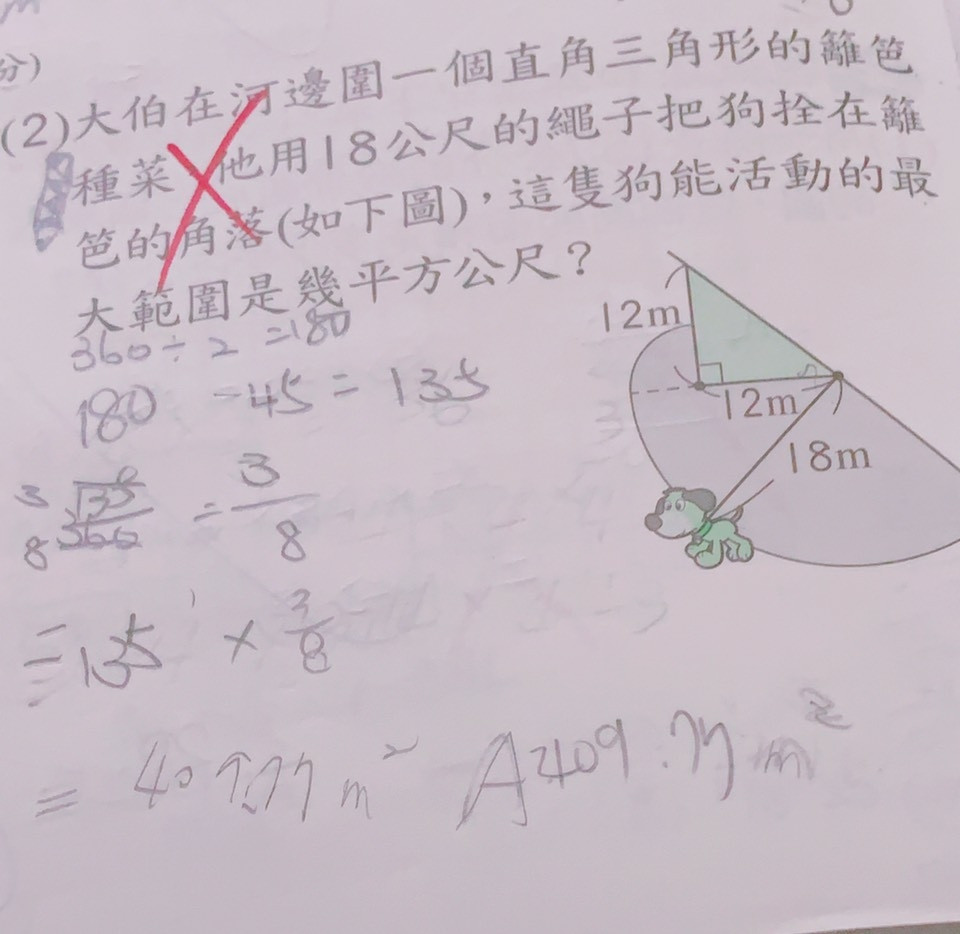 分)
(2)大伯在河邊圍一個直角三角形的籬笆
種菜 他用18公尺的繩子把狗拴在籬
笆的角落(如下圖),這隻狗能活動的最
大範圍是幾平方公尺?
12m
12m
18m
360÷2 =180
180 -45= 135
3 135
8 360 = 3/8
=135 × 3/8
= m² A 409.77 m²